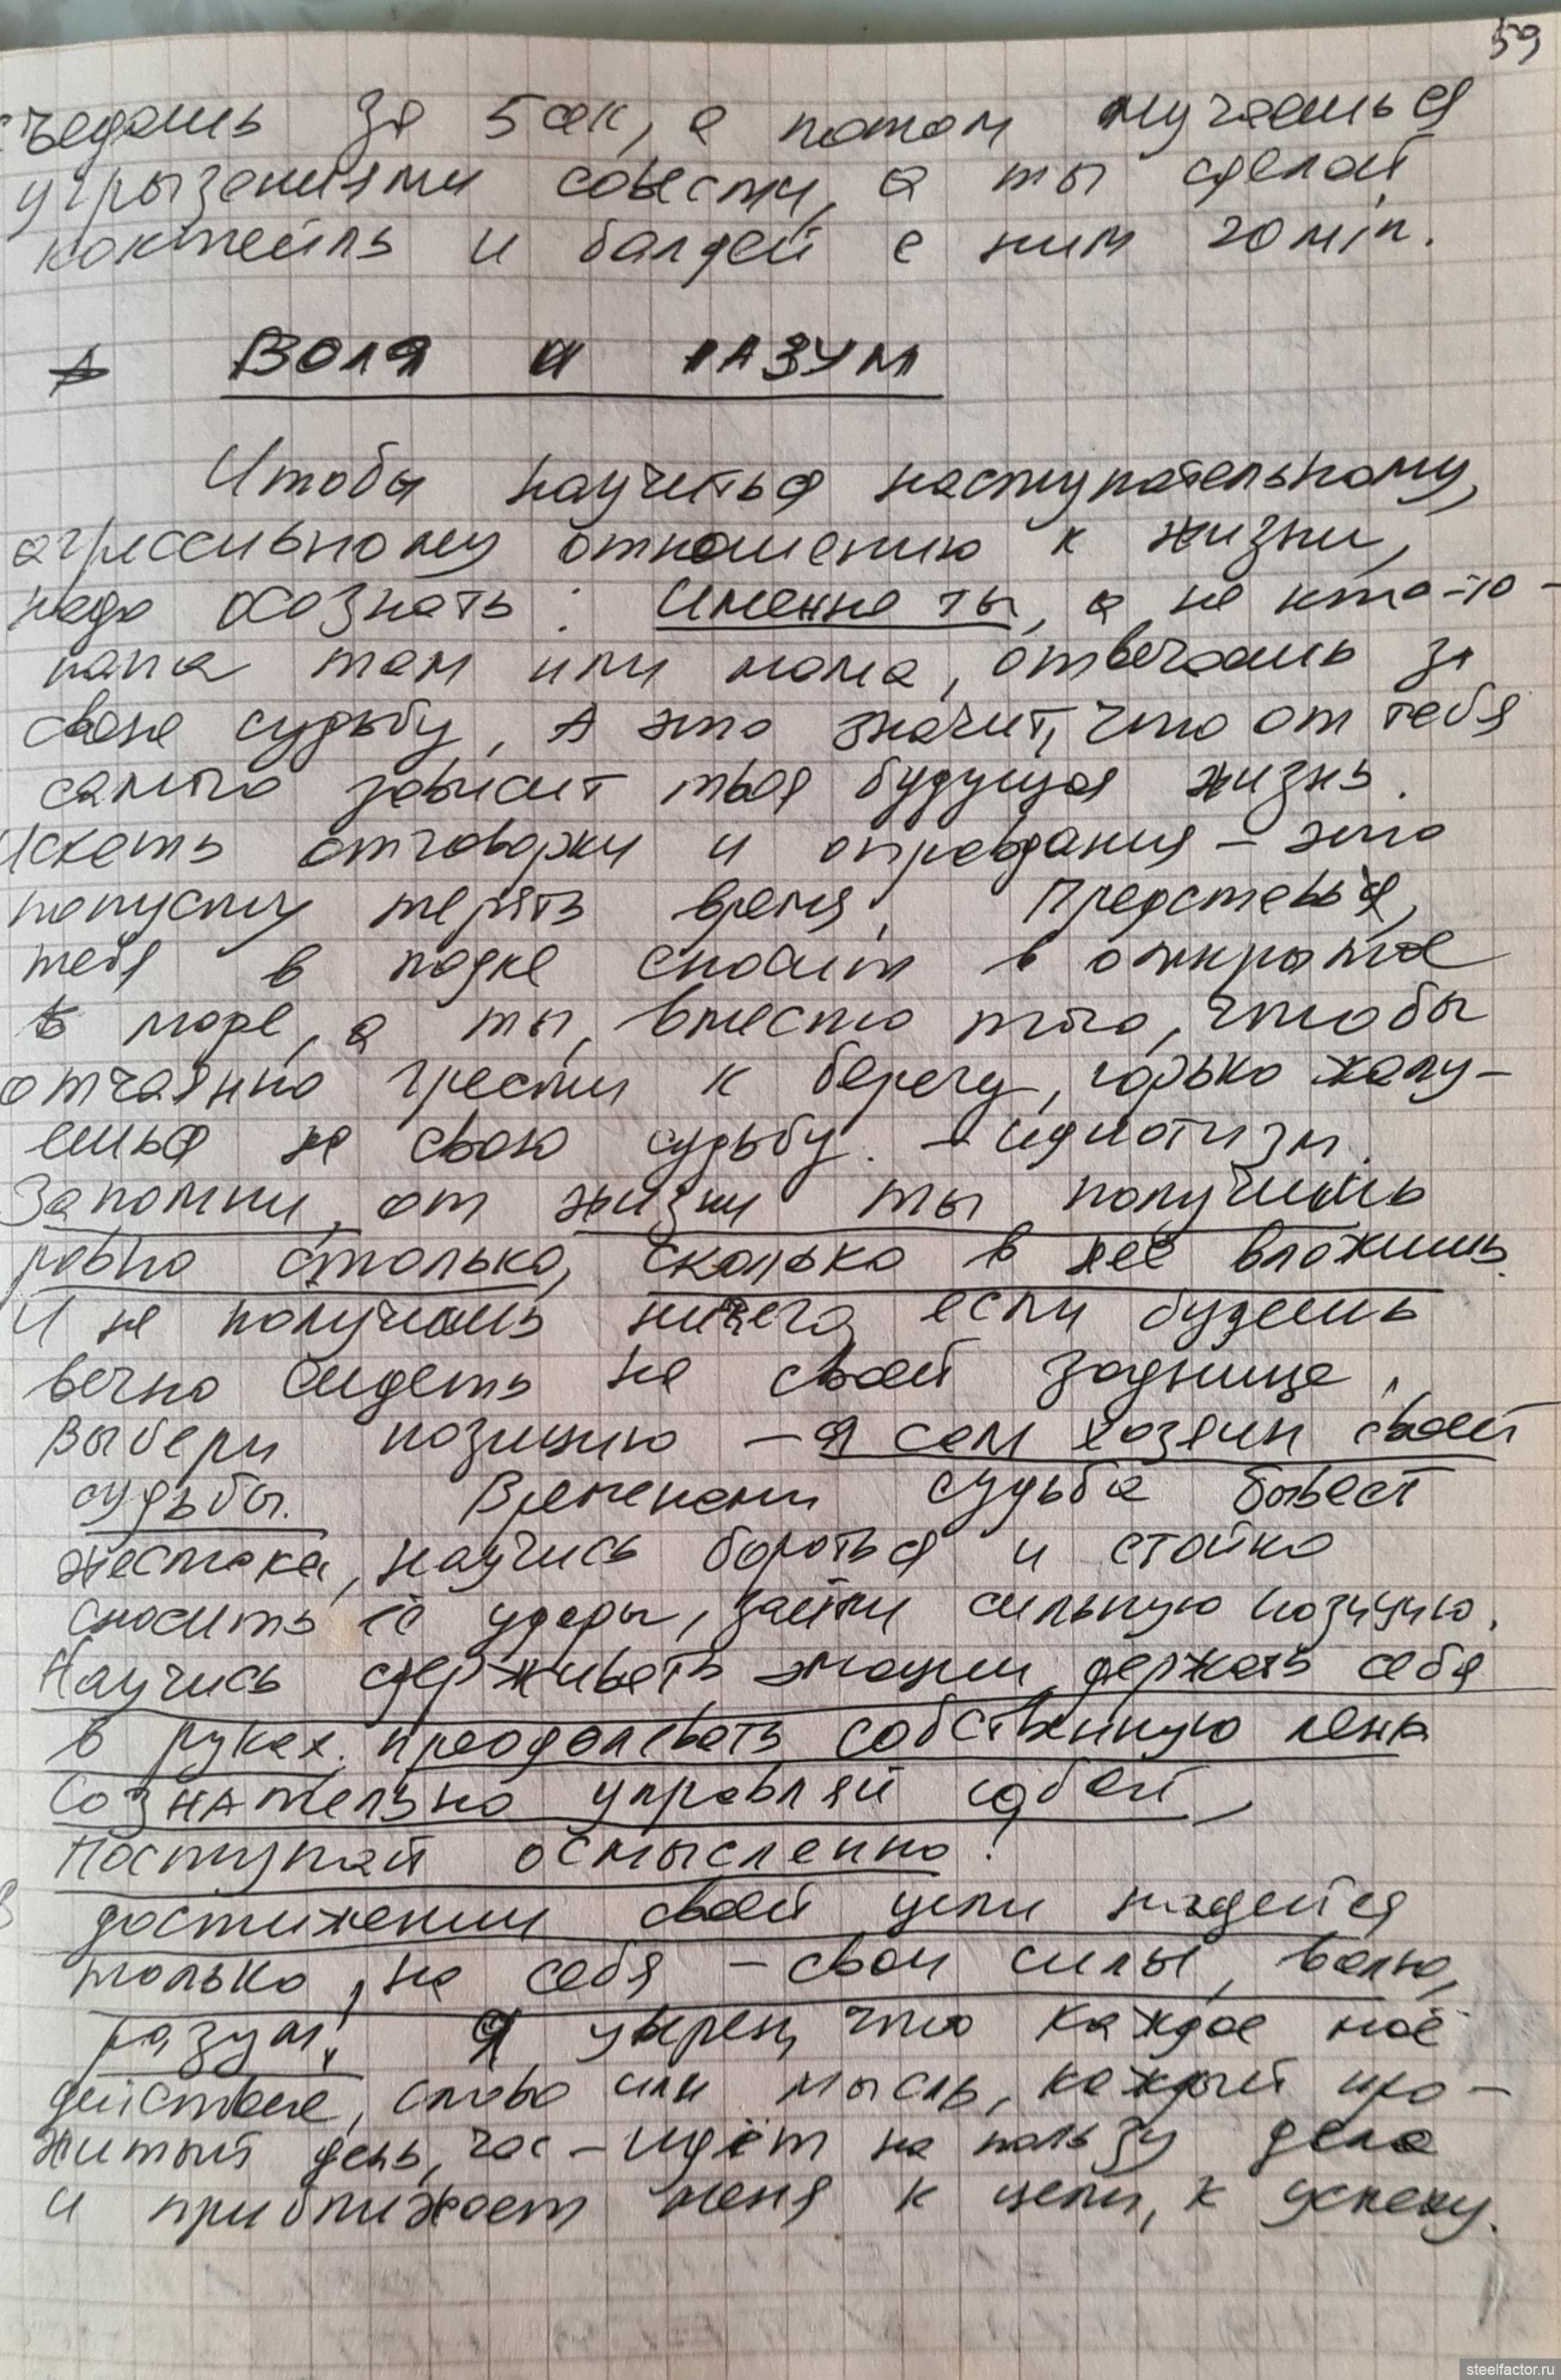 59
съедаешь за 5 сек, а потом мучаешься
угрызениями совести, а ты сделай
коктейль и балдей с ним 20 min.
Воля и разум
Чтобы научиться наступательному,
агрессивному отношению к жизни,
надо осознать: Именно ты, а не кто-то -
папа там или мама, отвечаешь за
свою судьбу, А это значит, что от тебя
самого зависит твоя будущая жизнь.
Искать отговорки и оправдания - это
попусту терять время! Представь,
тебя в лодке сносит в открытое
море, а ты, вместо того, чтобы
отчаянно грести к берегу, горько жалу-
ешься на свою судьбу. - идиотизм.
Запомни, от жизни ты получишь
ровно столько, сколько в неё вложишь.
И не получишь ничего, если будешь
вечно сидеть на своей заднице.
Выбери позицию - я сам хозяин своей
судьбы. Временами судьба бывает
жестока, научись бороться и стойко
сносить её удары, займи сильную позицию.
Научись сдерживать эмоции, держать себя
в руках, преодолевать собственную лень
Сознательно управляй собой,
Поступай осмысленно!
В достижении своей цели надейся
только, на себя - свои силы, волю,
разум! Я уверен, что каждое моё
действие, слово или мысль, каждый про-
житый день, час - идёт на пользу дела
и приближает меня к цели, к успеху.
steelfactor.ru